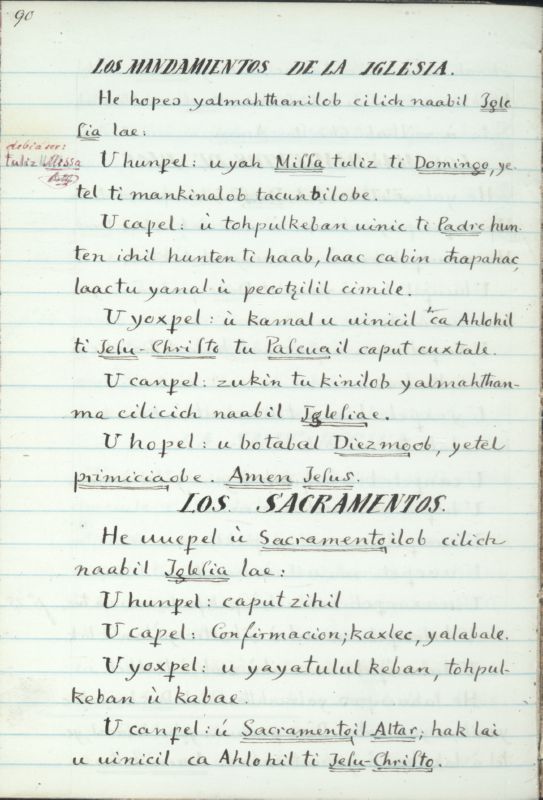 90
LOS MANDAMIENTOS DE LA IGLESIA.
He hopeɔ yalmahthanilob cilich naabil Igle
sia lae:
debia ser:
tuliz Missa
U hunpel: u yah Missa tuliz ti Domingo, ye-
tel ti mankinalob tacunbilobe.
U capel: ù tohpulkeban uinic ti Padre hun-
ten ichil hunten ti haab, laac ca bin chapahac,
laac tu yanal ù pecotzilil cimile.
U yoxpel: ù kamal u uinicil ca Ahlohil
ti Jesu-Christo tu Pascuail caput cuxtale.
U canpel: zukin tu kinilob yalmahthan-
ma cilicich naabil Iglesiae.
U hopel: u botabal Diezmoob, yetel
primiciaobe. Amen Jesus.
LOS SACRAMENTOS.
He uucpel ù Sacramentoilob cilich
naabil Iglesia lae:
U hunpel: caput zihil
U capel: Confirmacion; kaxlec, yalabale.
U yoxpel: u yayatulul keban, tohpul-
keban ù kabae.
U canpel: ú Sacramentoil Altar; hak lai
u uinicil ca Ahlohil ti Jesu-Christo.